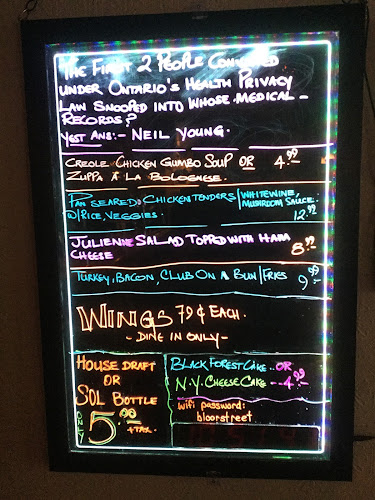 THE FIRST 2 PEOPLE CONVICTED
UNDER ONTARIO'S HEALTH PRIVACY
LAW SNOOPED INTO WHOSE MEDICAL -
RECORDS?
YEST ANS:- NEIL YOUNG.
CREOLE CHICKEN GUMBO SOUP OR 4.99
ZUPPA A LA BOLOGNESE.
PAN SEARED CHICKEN TENDERS | WHITE WINE,
W/RICE, VEGGIES. MUSHROOM SAUCE.
12.99
JULIENNE SALAD TOPPED WITH HAM 8.99
CHEESE
TURKEY, BACON, CLUB ON A BUN/FRIES 9.99
WINGS 79¢ EACH.
- DINE IN ONLY -
HOUSE DRAFT
OR
SOL BOTTLE
ONLY 5.00
+TAX.
BLACK FOREST CAKE OR
N.Y. CHEESE CAKE -- 4.99
wifi password:
bloorstreet